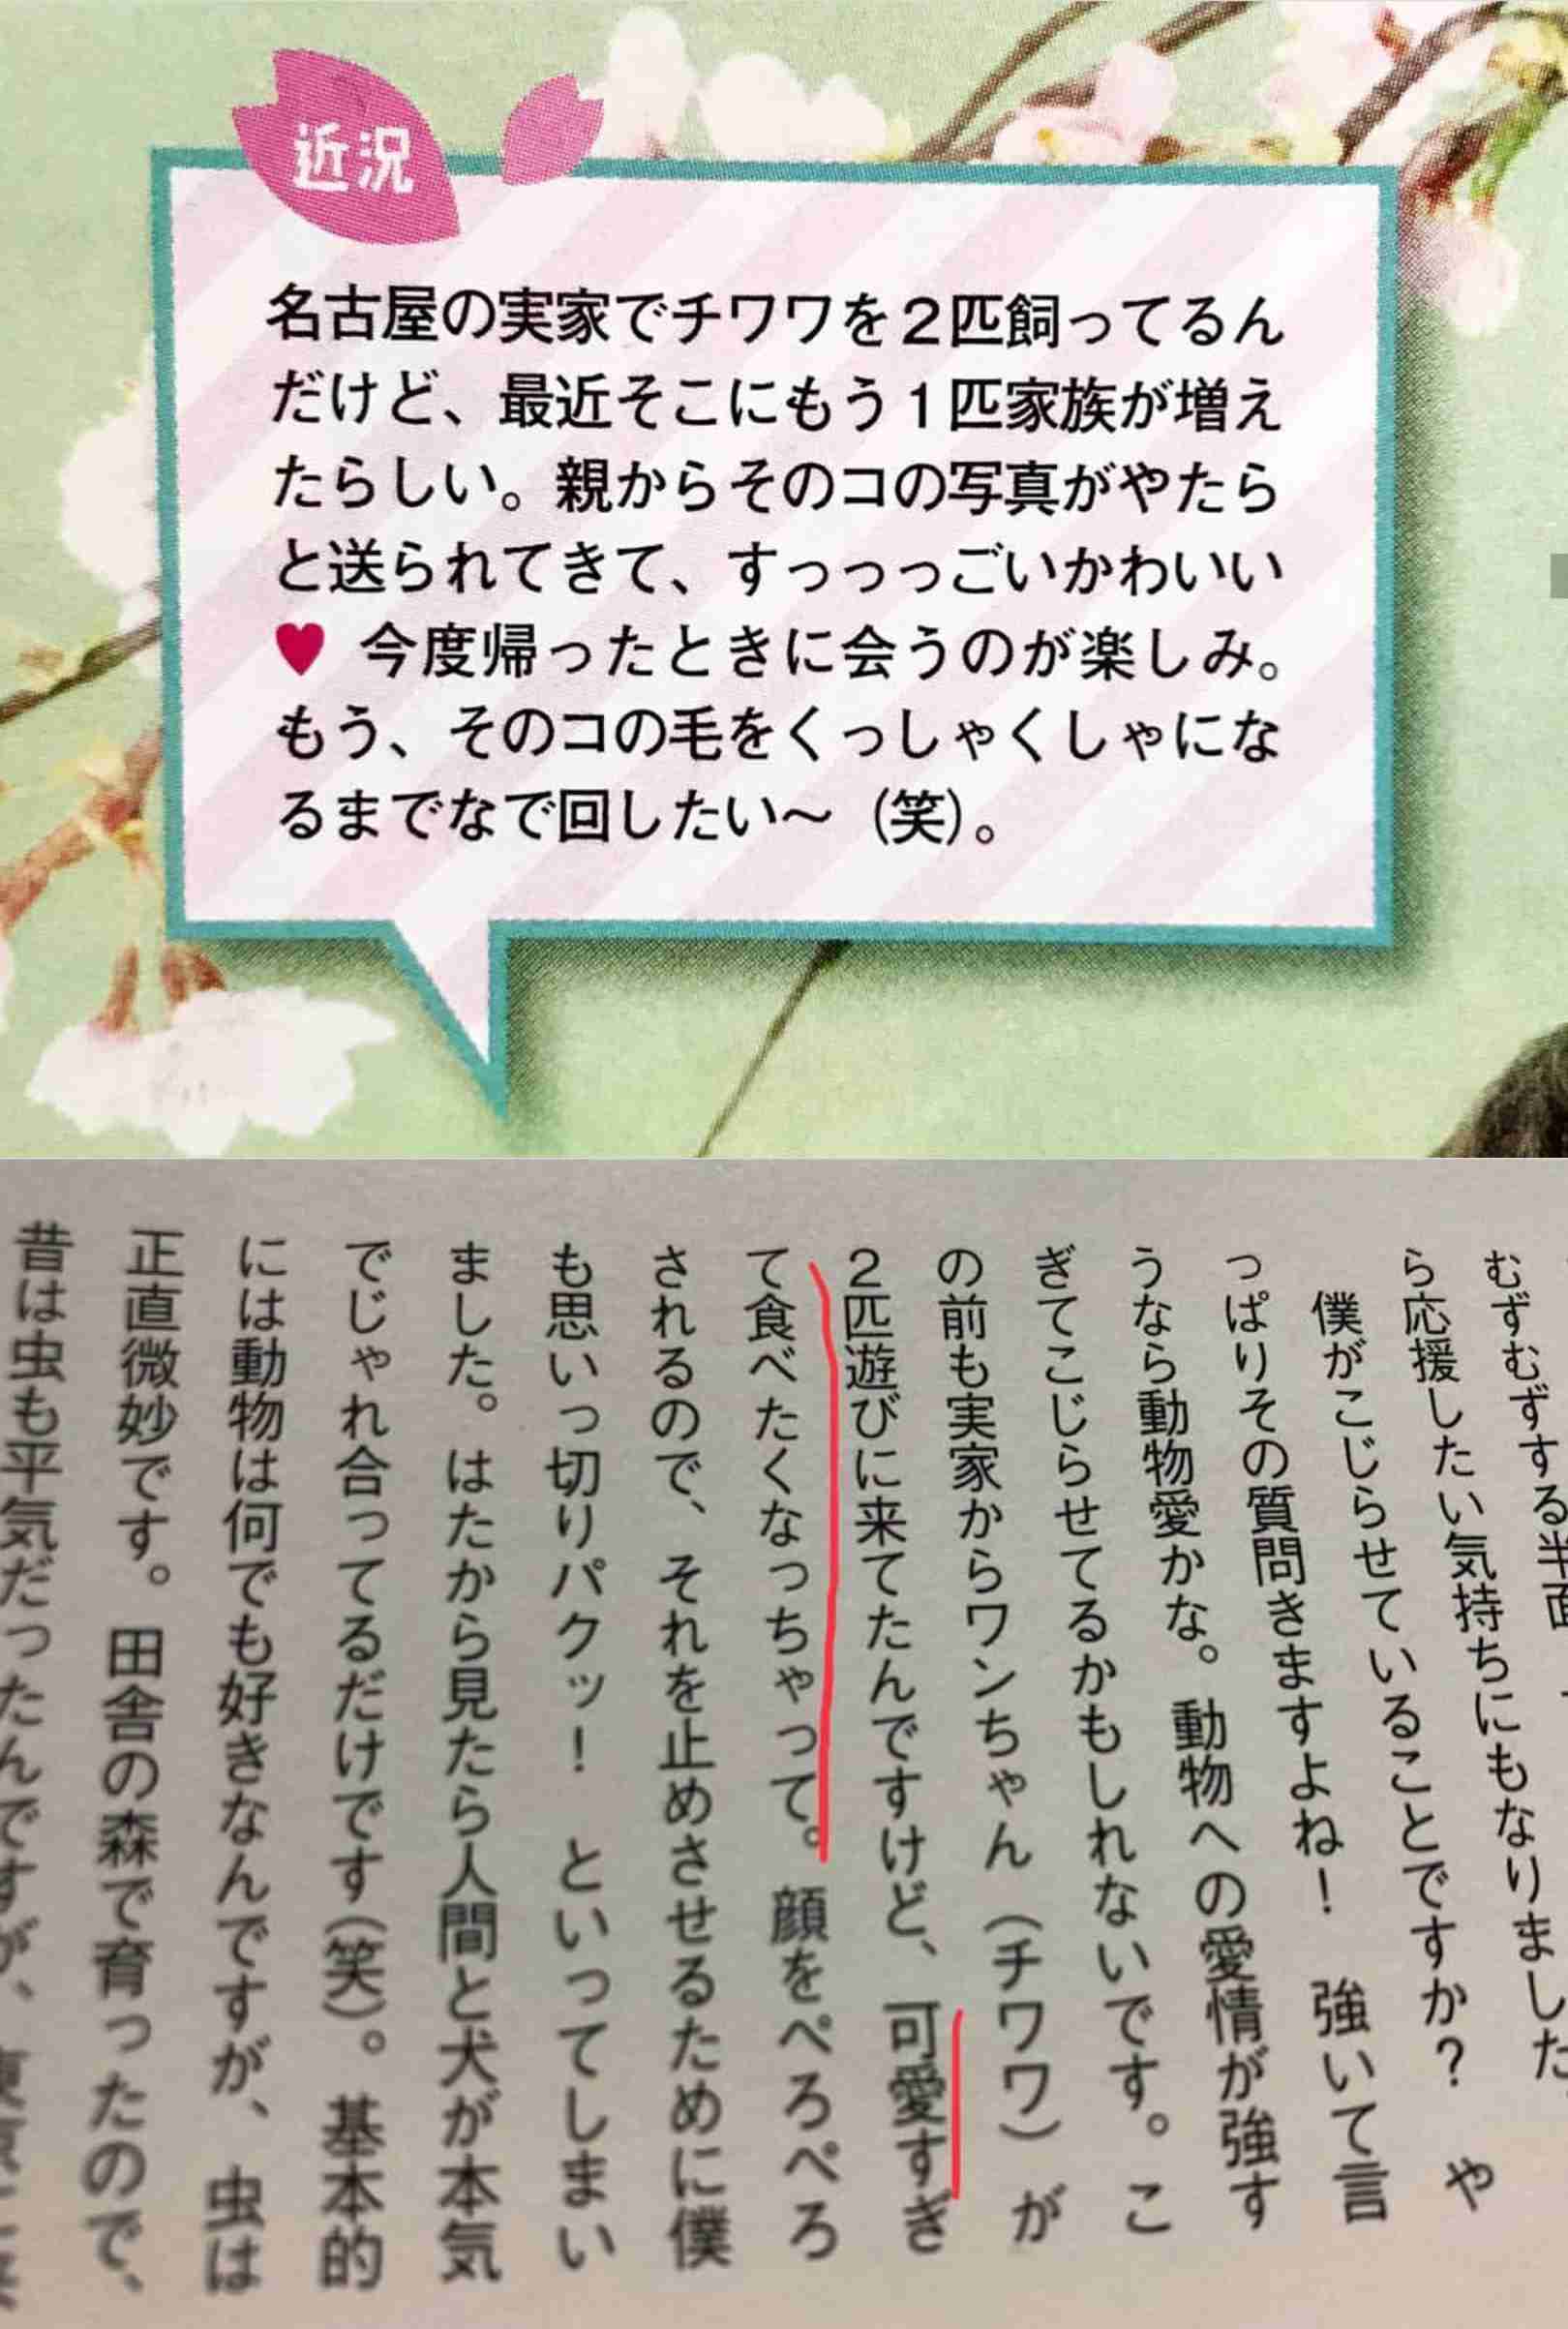 近況
名古屋の実家でチワワを2匹飼ってるん
だけど、最近そこにもう1匹家族が増え
たらしい。親からそのコの写真がやたら
と送られてきて、すっっっごいかわいい
♥ 今度帰ったときに会うのが楽しみ。
もう、そのコの毛をくっしゃくしゃにな
るまでなで回したい〜（笑）。
むずむずする半面
ら応援したい気持ちにもなりました
僕がこじらせていることですか？ や
っぱりその質問きますよね！ 強いて言
うなら動物愛かな。動物への愛情が強す
ぎてこじらせてるかもしれないです。こ
の前も実家からワンちゃん（チワワ）が
2匹遊びに来てたんですけど、可愛すぎ
て食べたくなっちゃって。顔をぺろぺろ
されるので、それを止めさせるために僕
も思いっ切りパクッ！ といってしまい
ました。はたから見たら人間と犬が本気
でじゃれ合ってるだけです（笑）。基本的
には動物は何でも好きなんですが、虫は
正直微妙です。田舎の森で育ったので、
昔は虫も平気だったんですが、